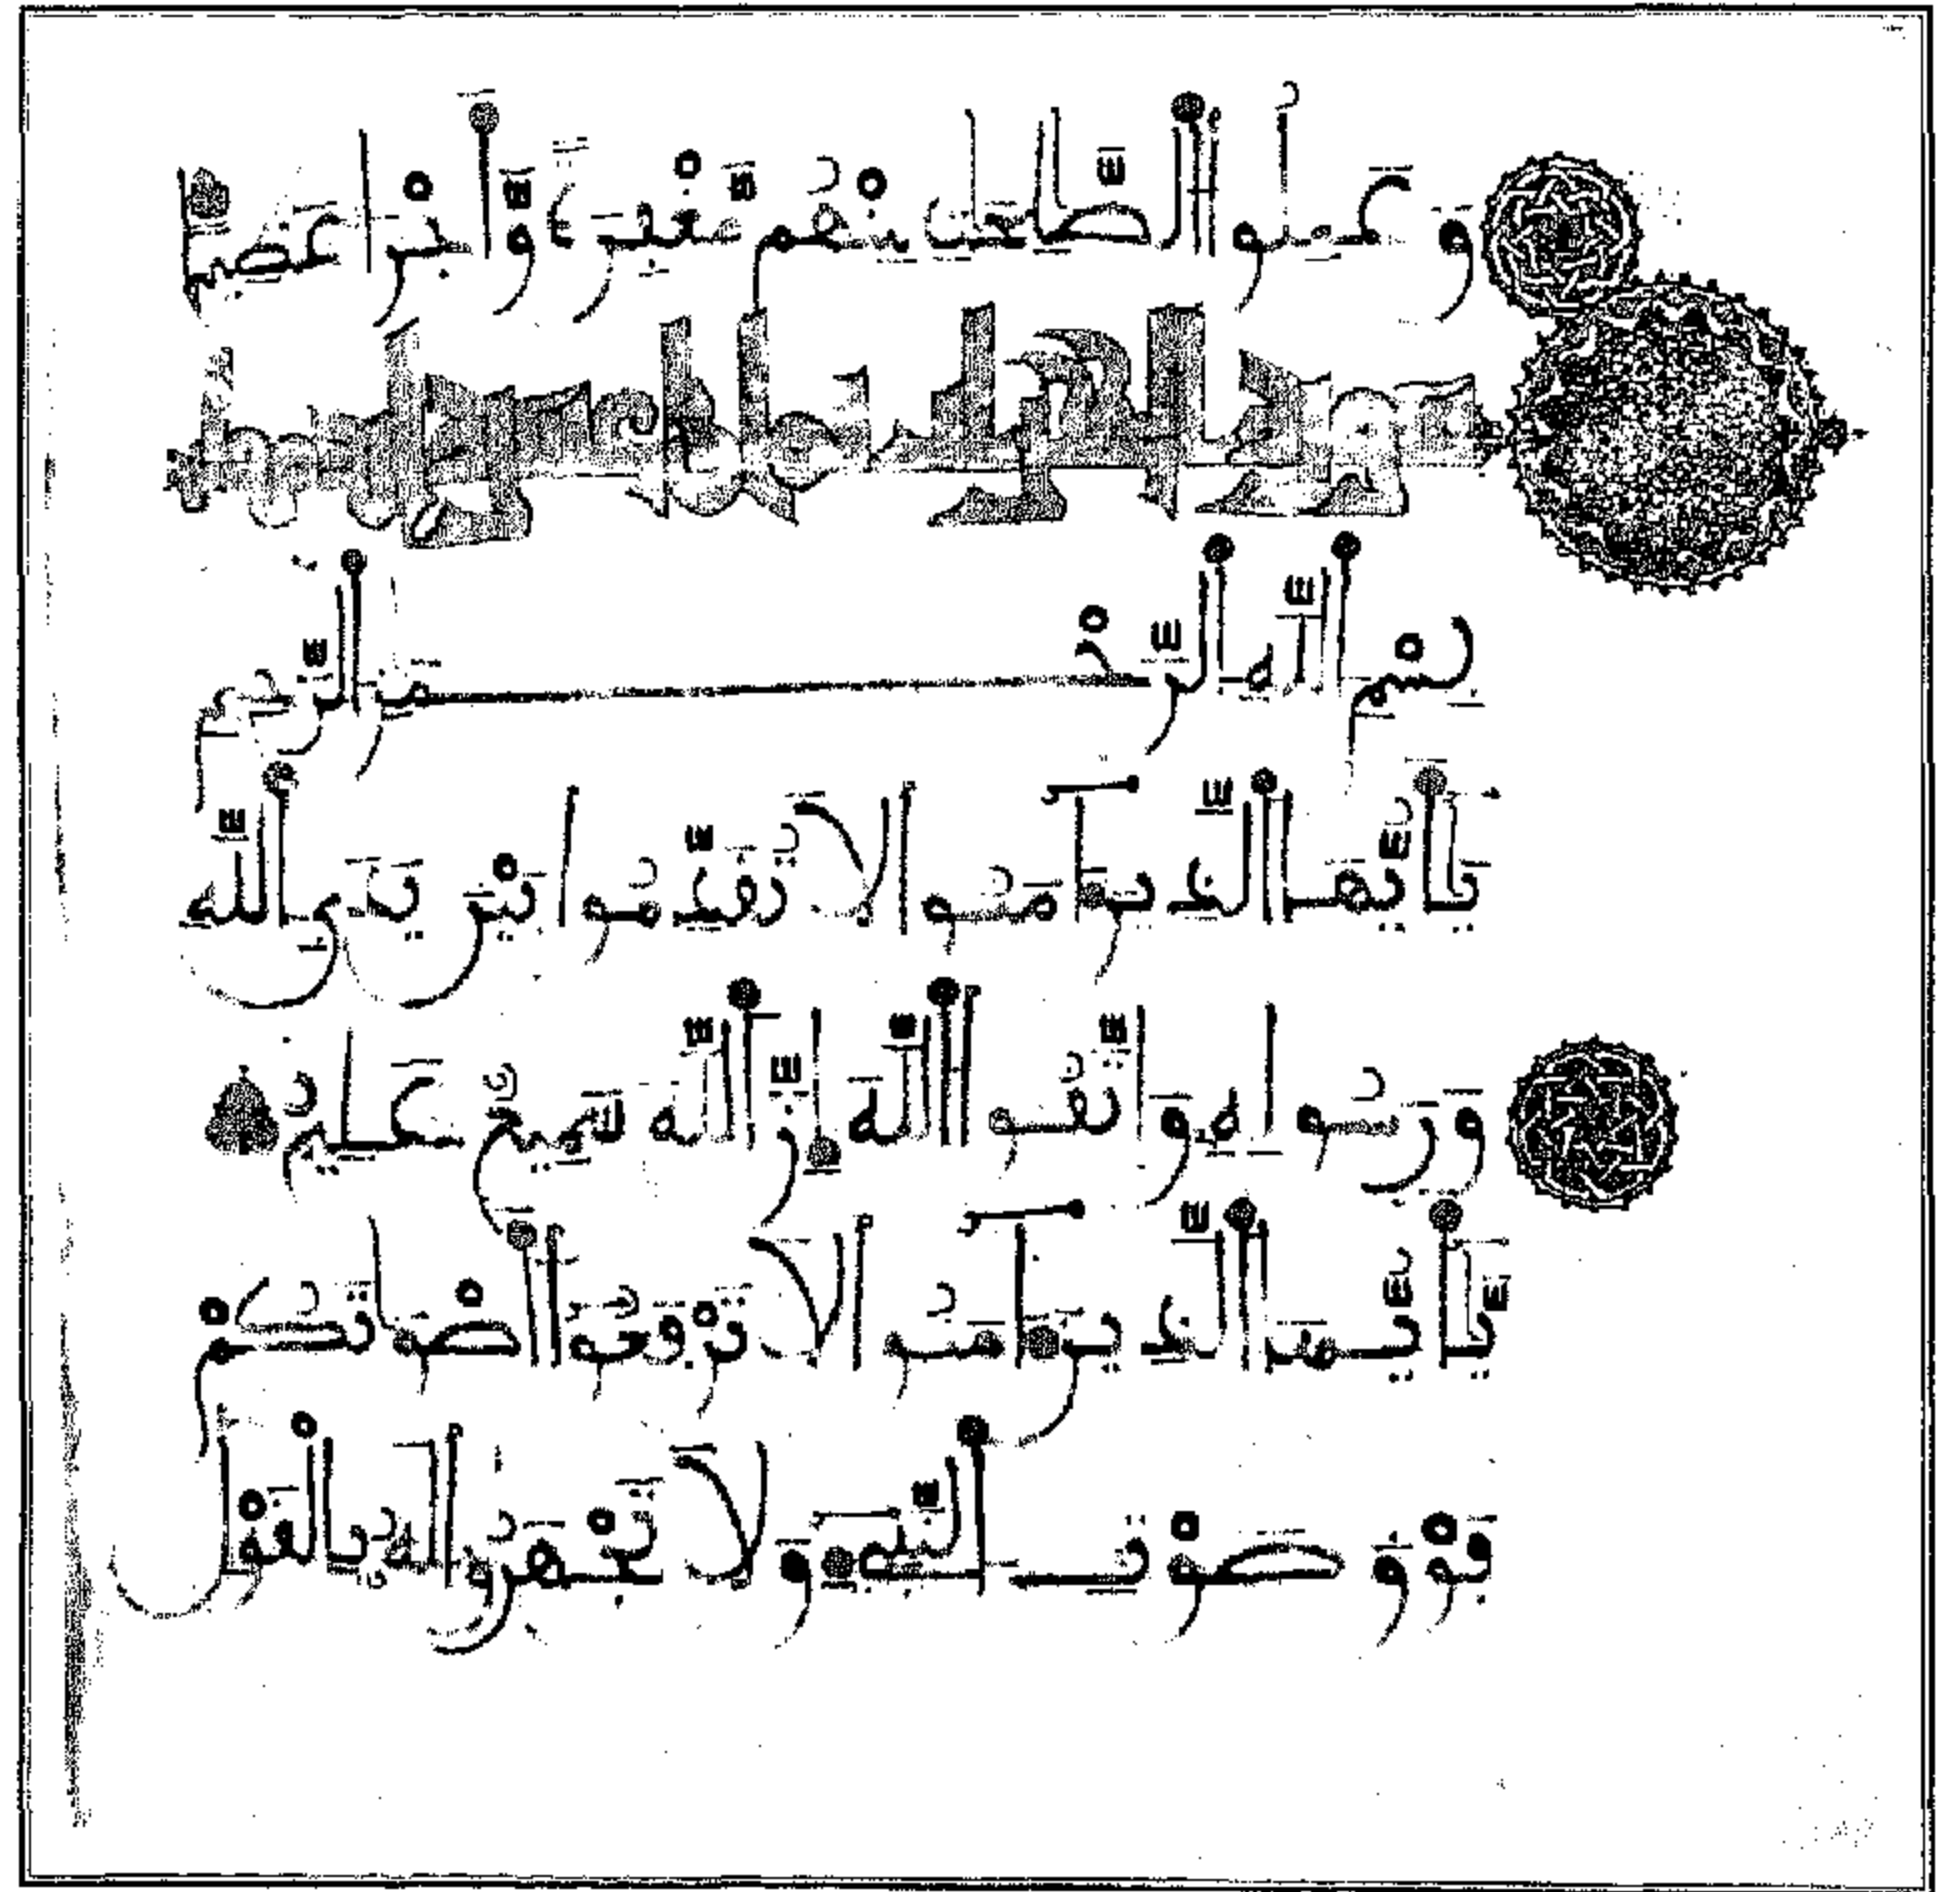 وَعَمِلُواْ الصَّالِحَاتِ مِنْهُم مَّغْفِرَةً وَأَجْراً عَظِيماً
سورة الحجرات
بِسْمِ اللَّهِ الرَّحْمَٰنِ الرَّحِيمِ
يَا أَيُّهَا الَّذِينَ ءَامَنُواْ لَا تُقَدِّمُواْ بَيْنَ يَدَيِ اللَّهِ
وَرَسُولِهِ وَاتَّقُواْ اللَّهَ إِنَّ اللَّهَ سَمِيعٌ عَلِيمٌ
يَا أَيُّهَا الَّذِينَ ءَامَنُواْ لَا تَرْفَعُواْ أَصْوَاتَكُمْ
فَوْقَ صَوْتِ النَّبِيءِ وَلَا تَجْهَرُواْ لَهُ بِالْقَوْلِ